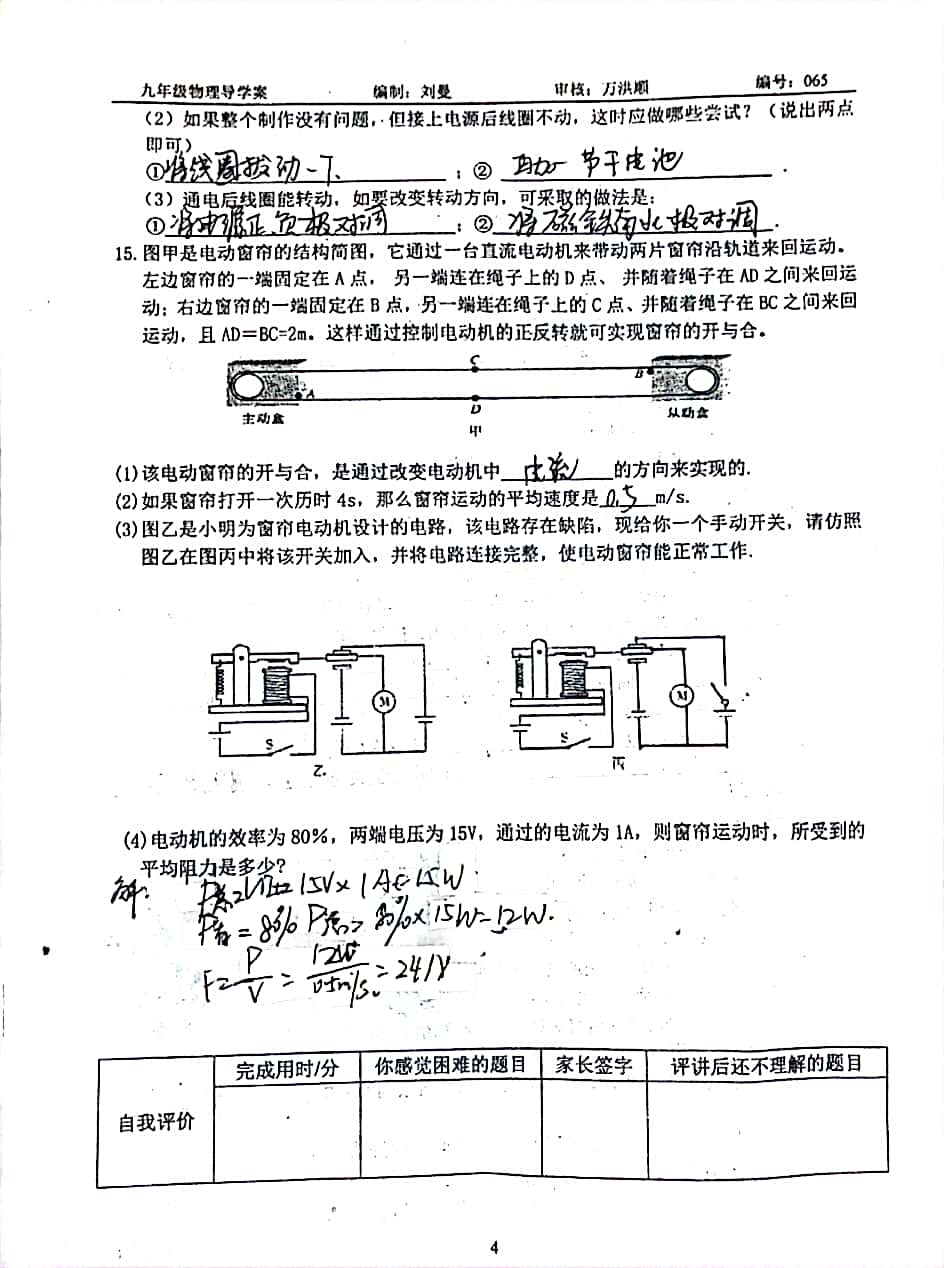 九年级物理导学案 编制：刘曼 审核：万洪顺 编号：065
（2）如果整个制作没有问题，但接上电源后线圈不动，这时应做哪些尝试？（说出两点
即可）
①将线圈拨动一下 ；② 再加一节干电池 .
（3）通电后线圈能转动，如要改变转动方向，可采取的做法是：
①将电源正负极对调 ；② 将磁铁南北极对调 .
15. 图甲是电动窗帘的结构简图，它通过一台直流电动机来带动两片窗帘沿轨道来回运动。
左边窗帘的一端固定在 A 点， 另一端连在绳子上的 D 点、 并随着绳子在 AD 之间来回运
动；右边窗帘的一端固定在 B 点，另一端连在绳子上的 C 点、并随着绳子在 BC 之间来回
运动，且 AD＝BC=2m。这样通过控制电动机的正反转就可实现窗帘的开与合。
C
B
A
D
主动盒 从动盒
甲
(1) 该电动窗帘的开与合，是通过改变电动机中 电流 的方向来实现的.
(2) 如果窗帘打开一次历时 4s，那么窗帘运动的平均速度是 0.5 m/s.
(3) 图乙是小明为窗帘电动机设计的电路，该电路存在缺陷，现给你一个手动开关，请仿照
图乙在图丙中将该开关加入，并将电路连接完整，使电动窗帘能正常工作.
M M
S S
乙 丙
(4) 电动机的效率为 80%，两端电压为 15V，通过的电流为 1A，则窗帘运动时，所受到的
平均阻力是多少？
解： P总=UI=15V×1A=15W
P有=80%P总=80%×15W=12W.
F=P/V=12W/0.5m/s=24N
完成用时/分 你感觉困难的题目 家长签字 评讲后还不理解的题目
自我评价
4